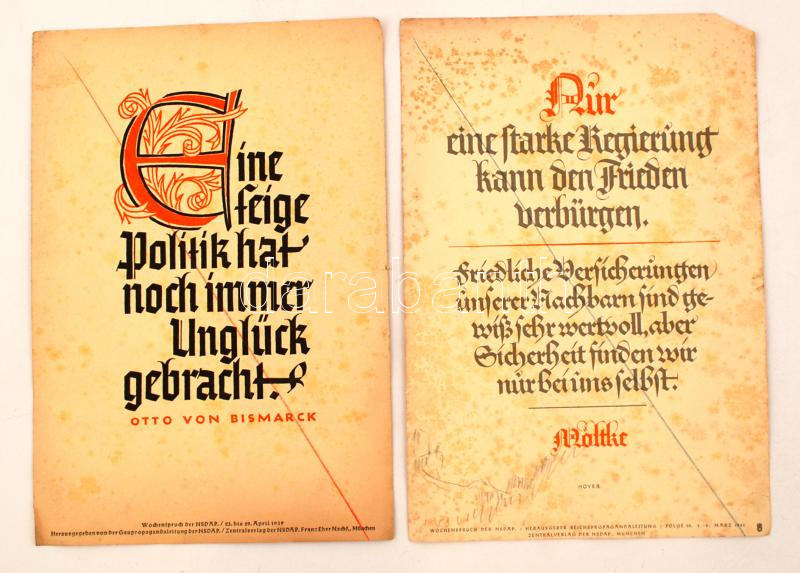 Eine
feige
Politik hat
noch immer
Unglück
gebracht.
OTTO VON BISMARCK
Wochenspruch der NSDAP. / 23. bis 29. April 1939
Herausgegeben von der Gaupropagandaleitung der NSDAP. / Zentralverlag der NSDAP. Franz Eher Nachf., München
Nur
eine starke Regierung
kann den Frieden
verbürgen.
Friedliche Versicherungen
unserer Nachbarn sind ge-
wiß sehr wertvoll, aber
Sicherheit finden wir
nur bei uns selbst.
Moltke
HOYER
WOCHENSPRUCH DER NSDAP. / HERAUSGEBER REICHSPROPAGANDALEITUNG / FOLGE MÄRZ
ZENTRALVERLAG DER NSDAP. MÜNCHEN
darabanth